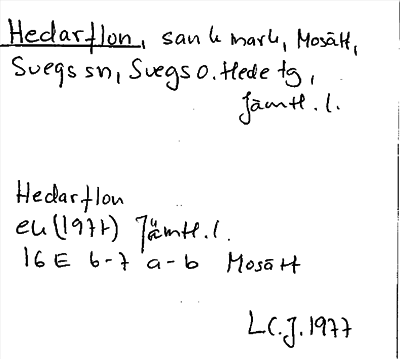 Hedarflon, sank mark, Mosätt,
Svegs sn, Svegs o. Hede tg,
Jämtl. l.
Hedarflon
ek (1971) Jämtl. l.
16 E 6-7 a-b Mosätt
L.C.J. 1977